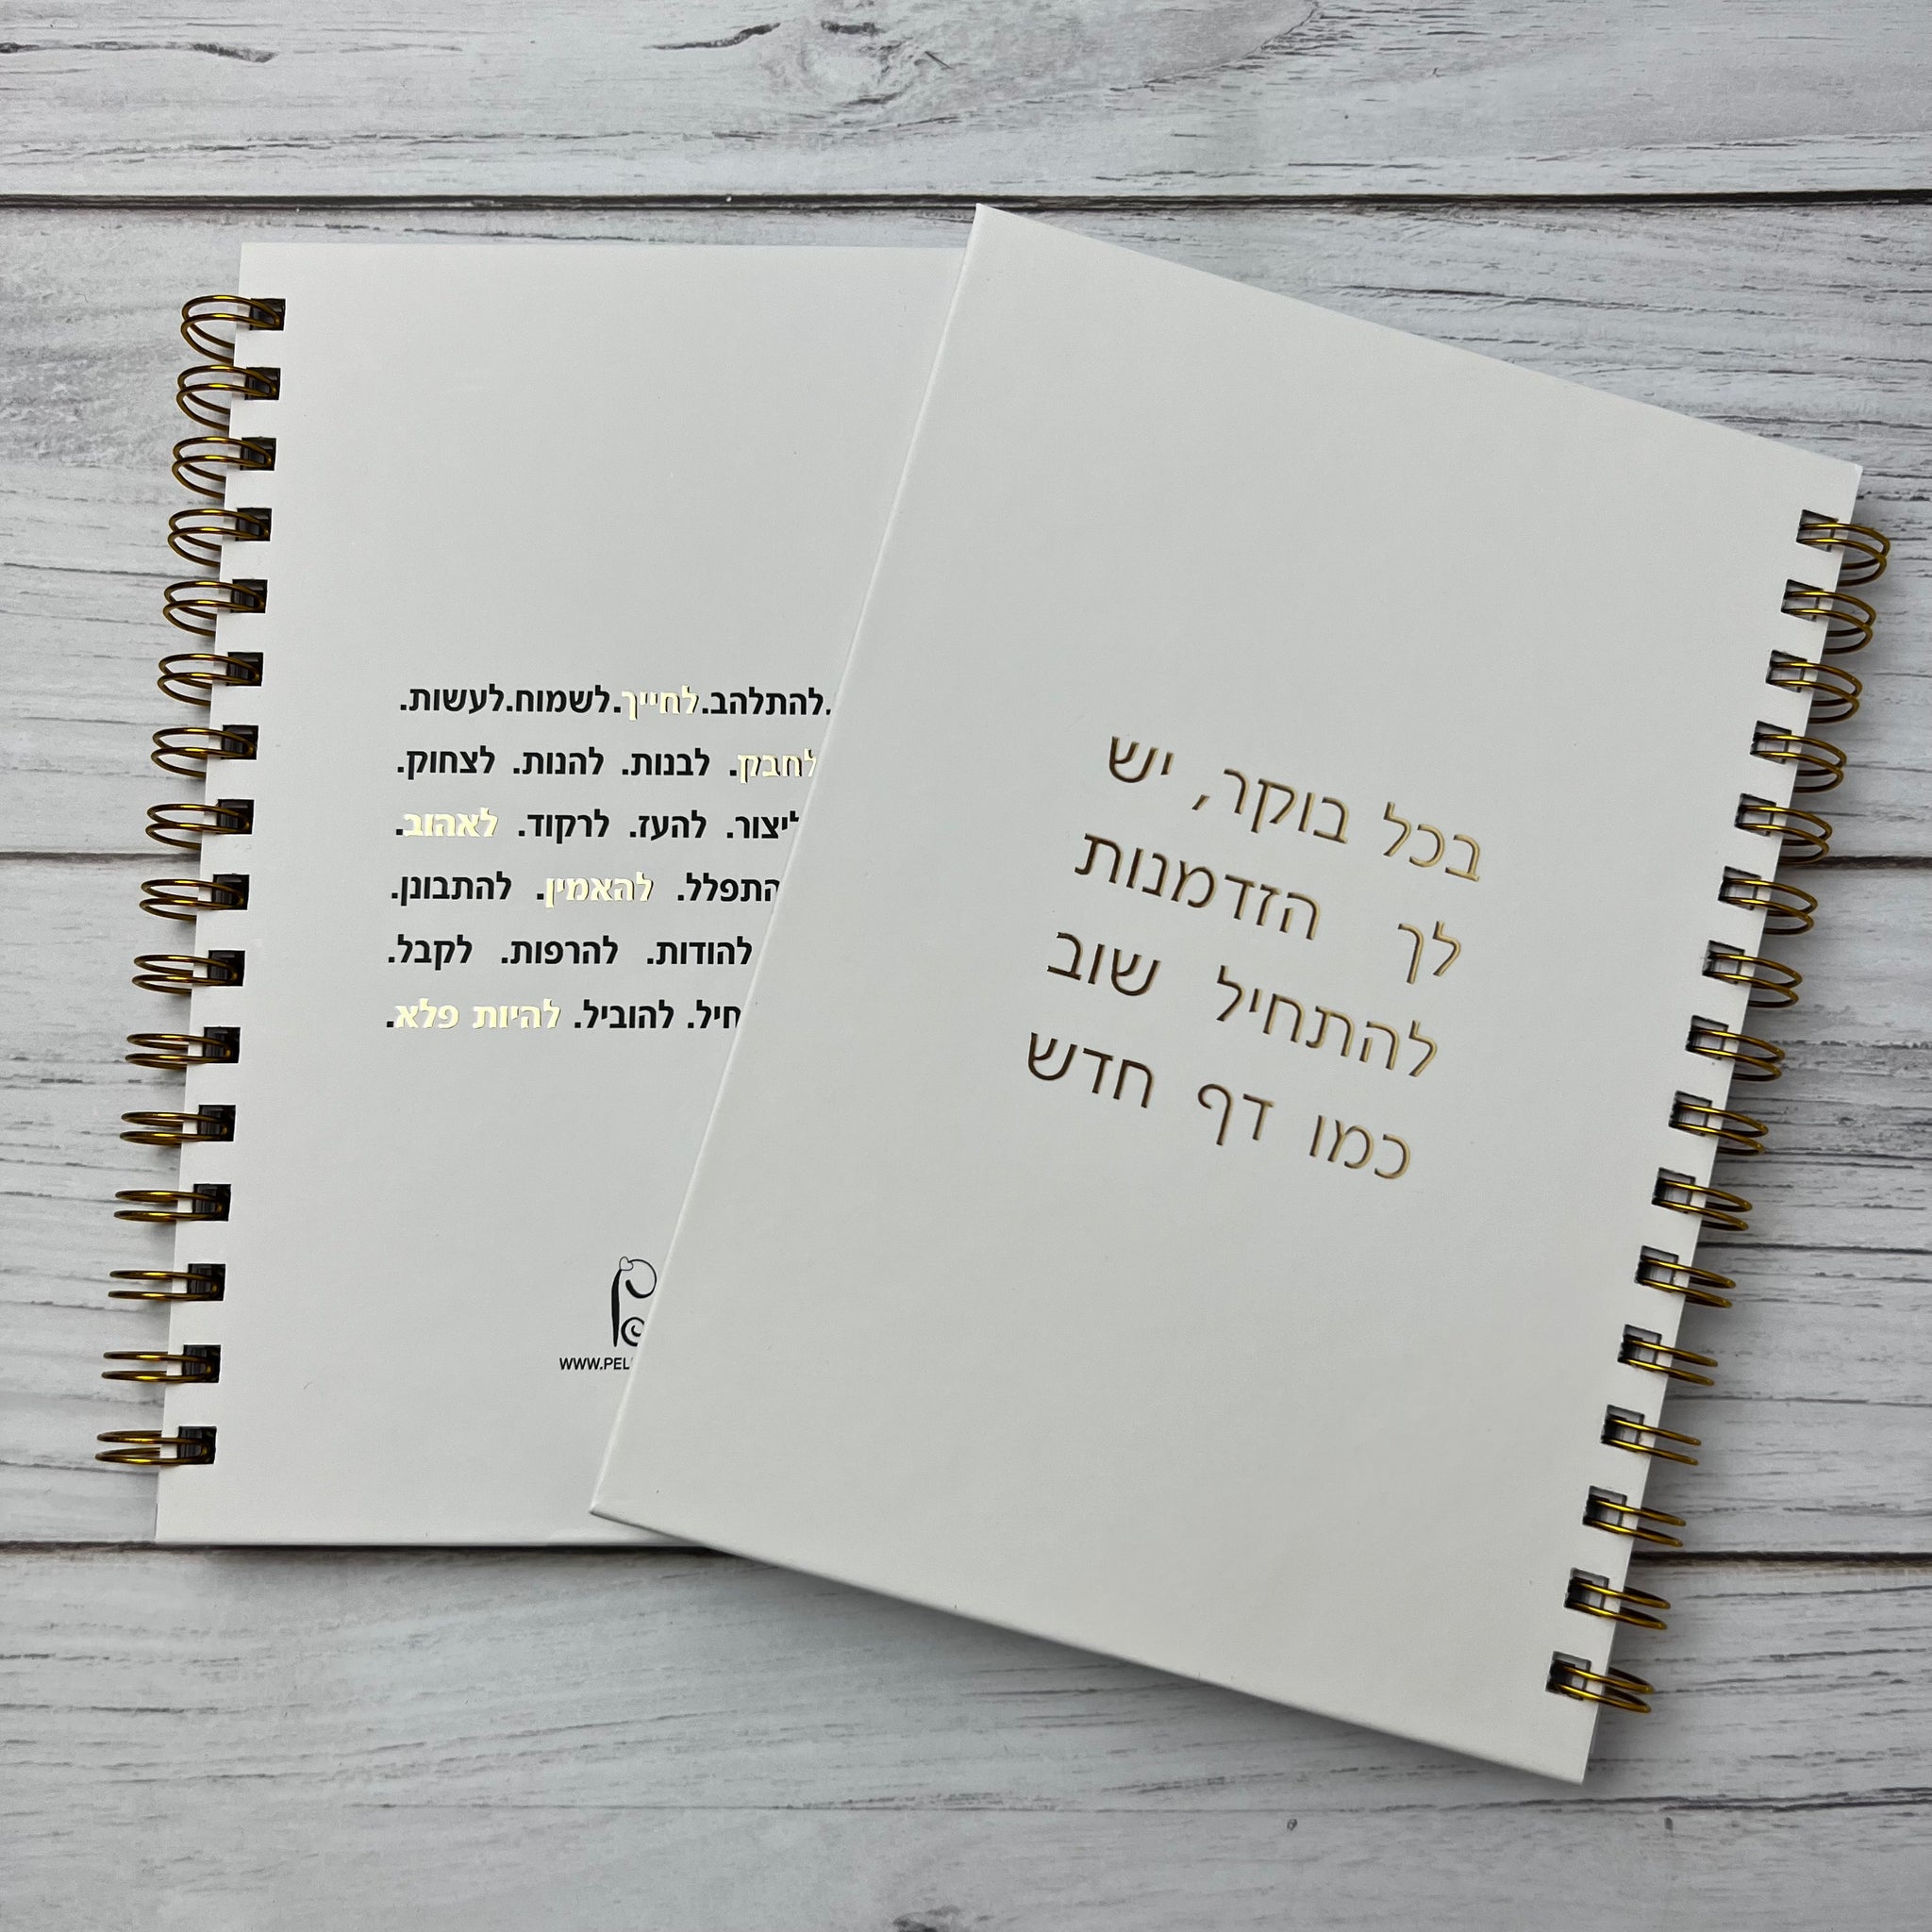 בכל בוקר, יש
לך הזדמנות
להתחיל שוב
כמו דף חדש
להתלהב.לחייך.לשמוח.לעשות.
לחבק. לבנות. להנות. לצחוק.
ליצור. להעז. לרקוד. לאהוב.
להאמין. להתבונן.
להודות. להרפות. לקבל.
להוביל. להיות פלא.